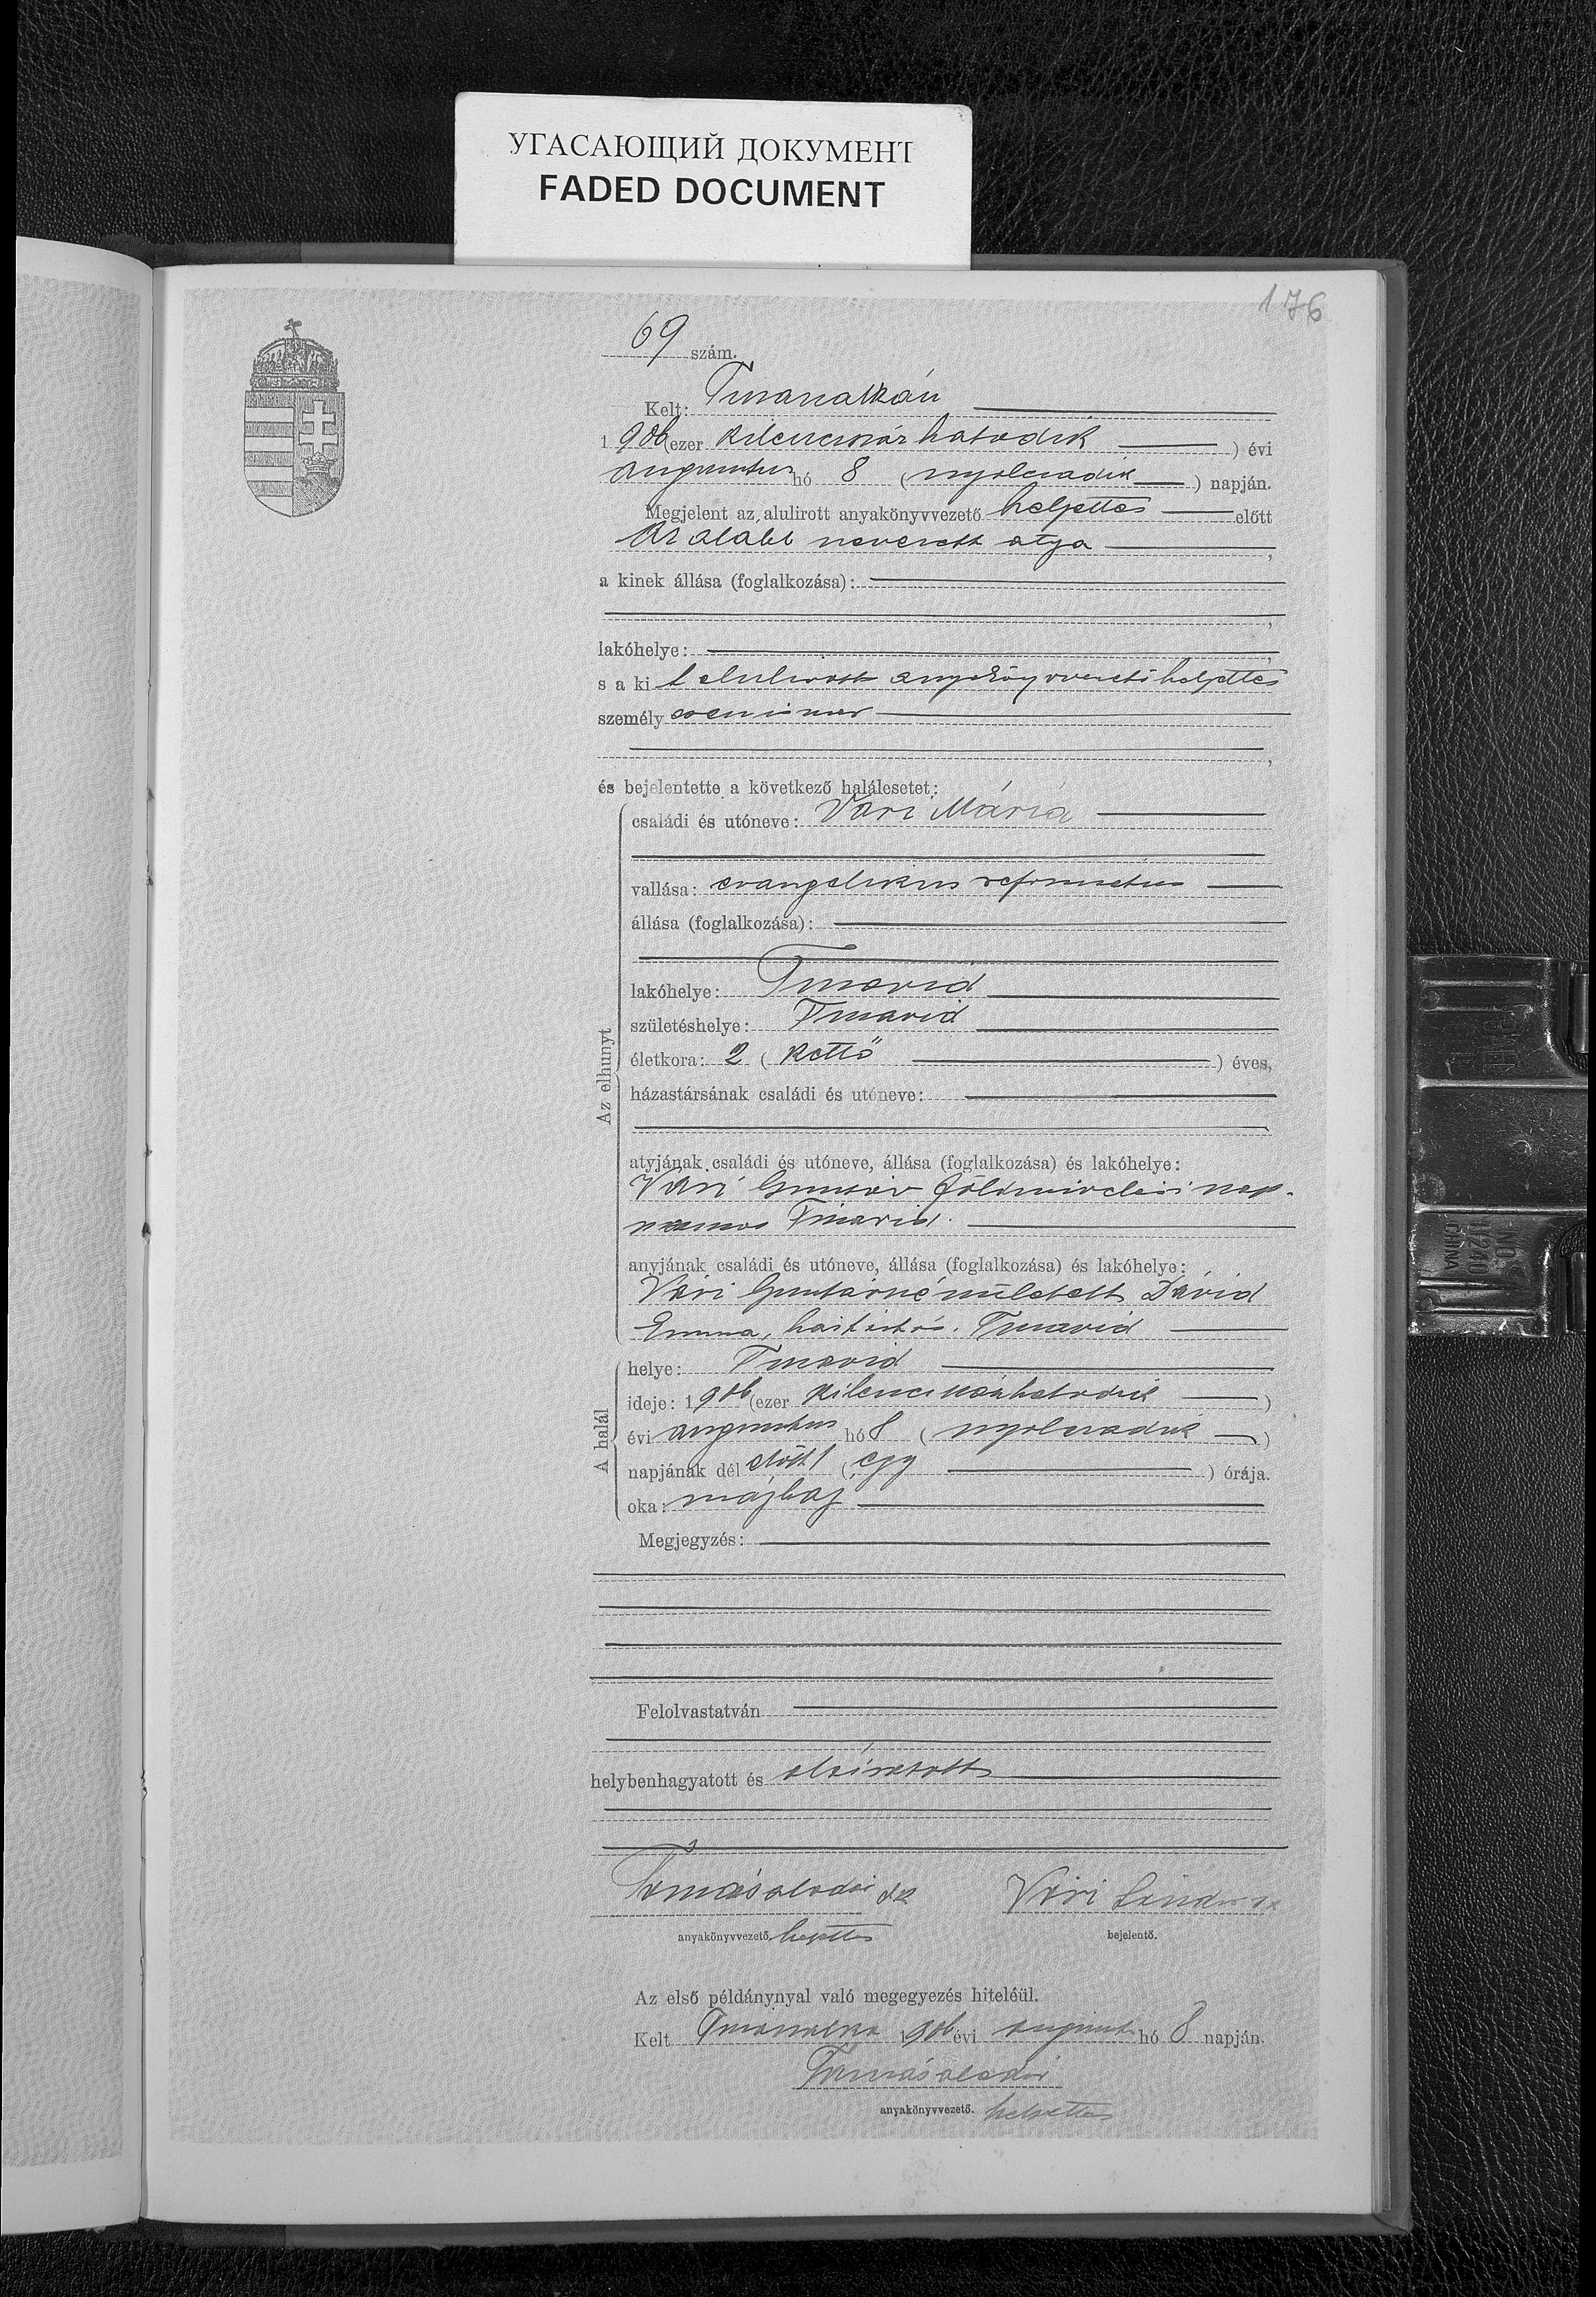 УГАСАЮЩИЙ ДОКУМЕНТ
FADED DOCUMENT
176
69 szám.
Kelt: Tiszacsalkán
1906 (ezer kilenczszázhatodik ) évi
augusztus hó 8 ( nyolczadik ) napján.
Megjelent az alulirott anyakönyvvezető helyettes előtt
Az alább nevezett atya ,
a kinek állása (foglalkozása):
,
lakóhelye: ,
s a kit alulirott anyakönyvvezető helyettes
személyesen ismer
,
és bejelentette a következő halálesetet:
Az elhunyt
családi és utóneve: Vári Mária
vallása: evangelikus reformatus
állása (foglalkozása):
lakóhelye:
születéshelye:
életkora: 2 ( kettő ) éves,
házastársának családi és utóneve:
atyjának családi és utóneve, állása (foglalkozása) és lakóhelye:
Vári földmivelési nap-
számos
anyjának családi és utóneve, állása (foglalkozása) és lakóhelye:
Vári született Dávid
Emma, háztartás.
A halál
helye:
ideje: 1906 (ezer kilenczszázhatodik )
évi augusztus hó 8 ( nyolczadik )
napjának dél előtt 1 ( egy ) órája.
oka: májbaj
Megjegyzés:
Felolvastatván
helybenhagyatott és aláiratott
Vári
anyakönyvvezető helyettes bejelentő.
Az első példánynyal való megegyezés hiteléül.
Kelt 1906 évi august hó 8 napján.
anyakönyvvezető. helyettes
NO
11240
CHINA